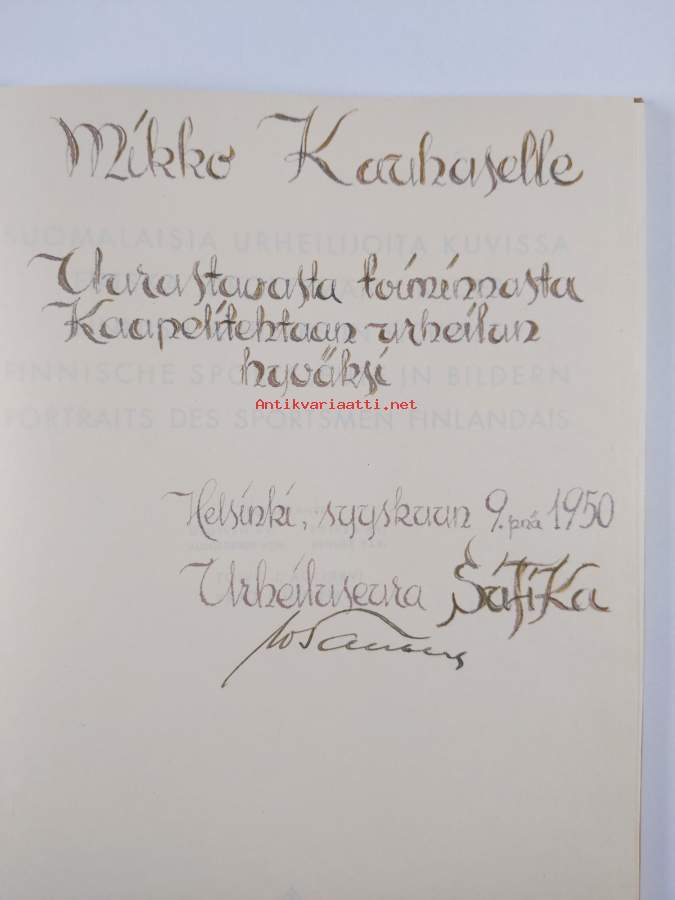 Mikko Kauhaselle
SUOMALAISIA URHEILIJOITA KUVISSA
toiminnasta
Kaapelitehtaan urheilun
hyväksi
FINNISCHE IN BILDERN
Antikvariaatti.net
PORTRAITS DES SPORTSMEN FINLANDAIS
Helsinki, syyskuun 9. pnä 1950
Urheiluseura SäFiKa